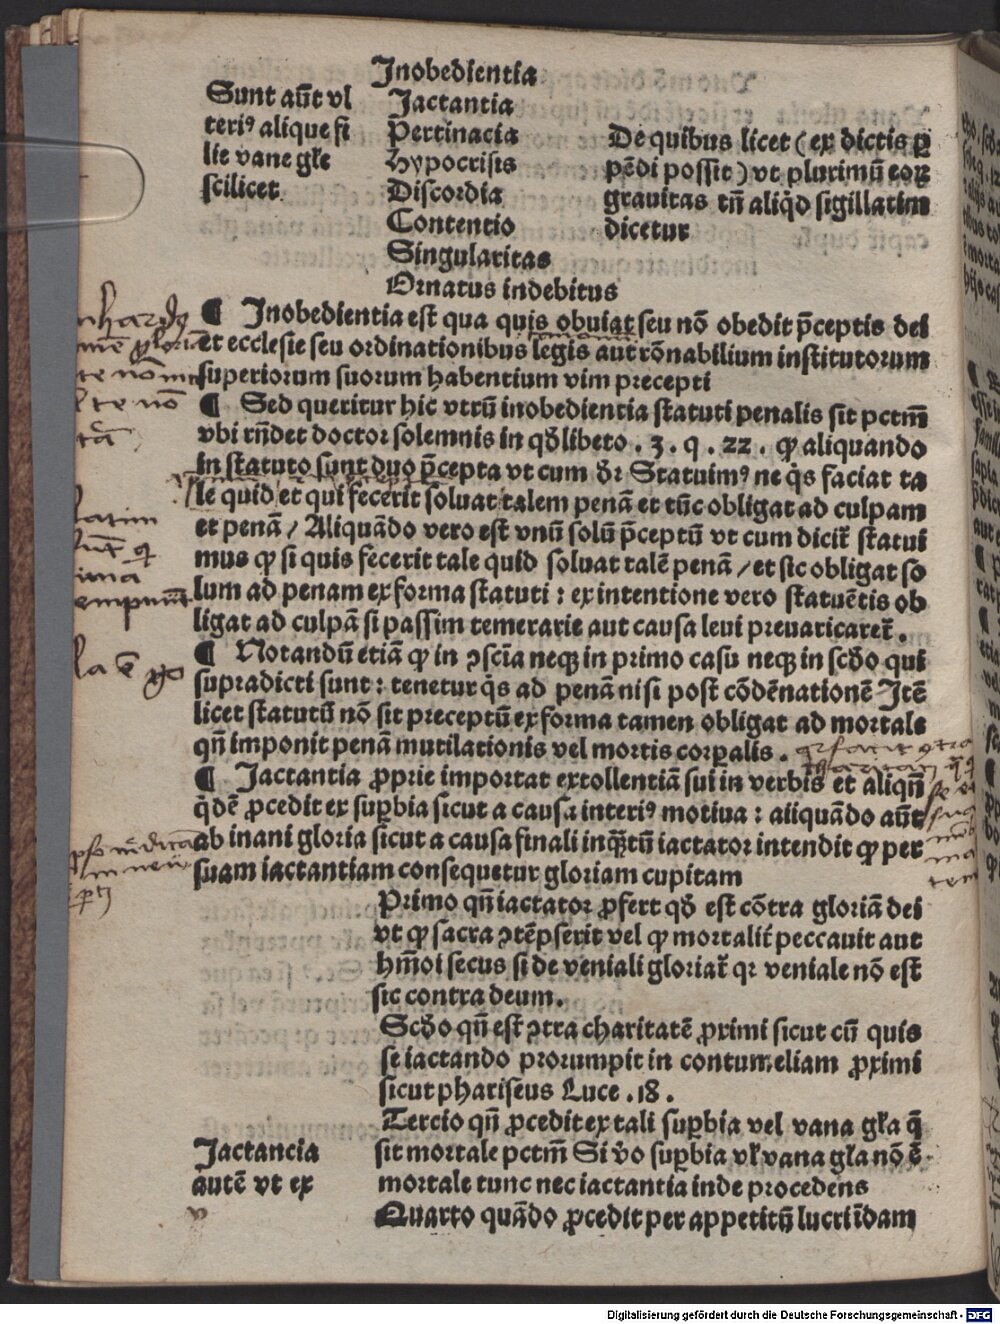 Inobedientia
Sunt aūt vl
teriꝰ alique fi
lie vane gł̄e
scilicet
Jactantia
P̄ertinacia
Hypocrisis
Discordia
Contentio
Singularitas
Ornatus indebitus
De quibus licet ( ex dictis ꝑ
pēdi possit ) vt plurimū eoꝝ
grauitas tn̄ aliq̇d sigillatim
dicetur
¶ Inobedientia est qua quis obuiat seu nō obedit p̄ceptis dei
et ecclesie seu ordinationibus legis aut rōnabilium institutorum
superiorum suorum habentium vim precepti
¶ Sed queritur hic vtrū inobedientia statuti penalis sit pctm̄
vbi rn̄det doctor solemnis in qđlibeto . 3 . q . 22 . ꝙ aliquando
in statuto sunt duo p̄cepta vt cum đr Statuimꝰ ne q̇s faciat ta
le quid et qui fecerit soluat talem penā et tūc obligat ad culpam
et penā / Aliquādo vero est vnū solū p̄ceptū vt cum dicit̄ statui
mus ꝙ si quis fecerit tale quid soluat talē penā / et sic obligat so
lum ad penam ex forma statuti : ex intentione vero statuētis ob
ligat ad culpā si passim temerarie aut causa leui preuaricaret̄ .
¶ Notandū etiā ꝙ in ꝯscīa neqꝫ in primo casu neqꝫ in scđo qui
supradicti sunt : tenetur q̇s ad penā nisi post cōdēnationē Itē
licet statutū nō sit preceptū ex forma tamen obligat ad mortale
qn̄ imponit penā mutilationis vel mortis corꝑalis .
¶ Jactantia ꝓprie importat extollentiā sui in verbis et aliqn̄
q̇dē ꝓcedit ex suꝑbia sicut a causa interiꝰ motiua : aliquādo aūt
ab inani gloria sicut a causa finali inq̄ꝫtū iactator intendit ꝙ per
suam iactantiam consequetur gloriam cupitam
Jactancia
autē vt ex
Primo qn̄ iactator ꝓfert qđ est cōtra gloriā dei
vt ꝙ sacra ꝯtēpserit vel ꝙ mortalit̄ peccauit aut
hm̄oi secus si de veniali gloriat̄ qꝛ veniale nō est
sic contra deum .
Scđo qn̄ est ꝯtra charitatē ꝓximi sicut cū quis
se iactando prorumpit in contumeliam ꝓximi
sicut phariseus Luce . 18 .
Tercio qn̄ ꝓcedit ex tali suꝑbia vel vana gła q̄
sit mortale pctm̄ Si v̇o suꝑbia vł vana gła nō ē
mortale tunc nec iactantia inde procedens
Quarto quādo ꝓcedit per appetitū lucri īdam
Digitalisierung gefördert durch die Deutsche Forschungsgemeinschaft - DFG